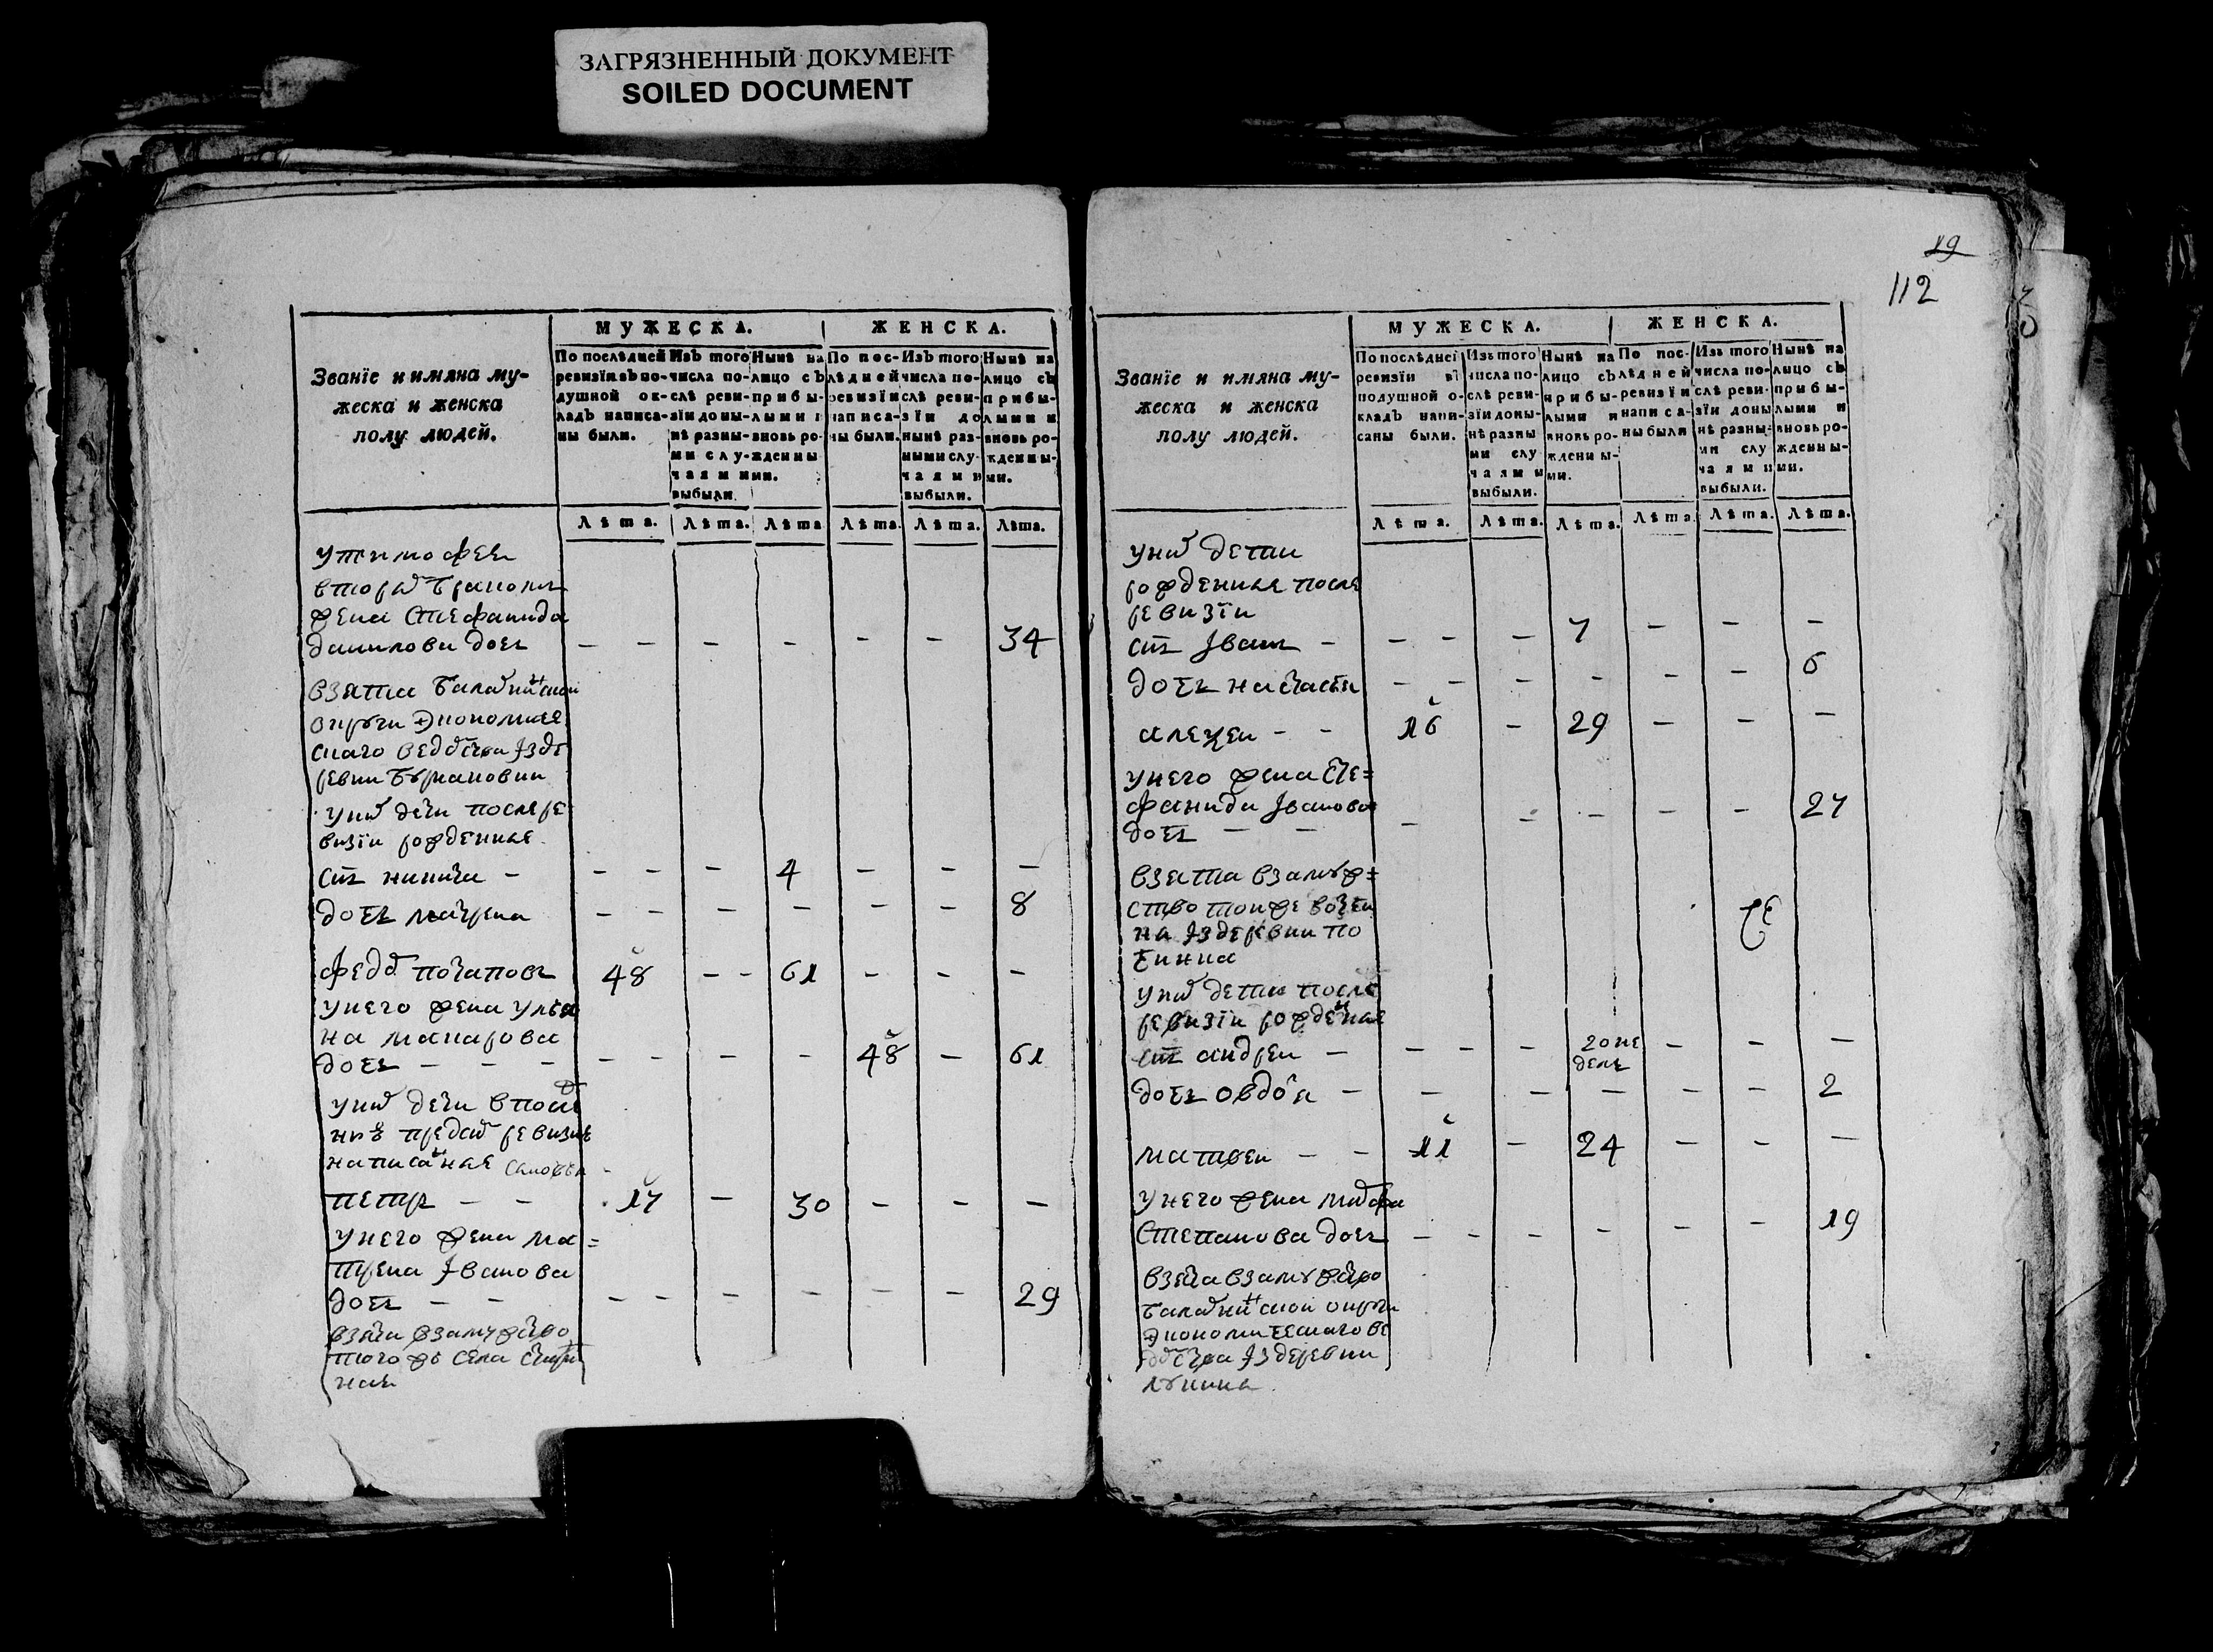 ЗАГРЯЗНЕННЫЙ ДОКУМЕНТ
SOILED DOCUMENT
Званїе и имяна му-
жеска и женска
полу людей.
МУЖЕСКА.
ЖЕНСКА.
По послѣдней
ревизїи въ по-
душной ок-
ладъ написа-
ны были.
Изъ того
числа по-
слѣ реви-
зїи доны-
нѣ разны-
ми слу-
чаями
выбыли.
Нынѣ на
лицо съ
прибы-
лыми и
вновь ро-
жденны-
ми.
По пос-
лѣдней
ревизїи
написа-
ны были.
Изъ того
числа по-
слѣ реви-
зїи до
нынѣ раз-
ными слу-
чаями
выбыли.
Нынѣ на
лицо съ
прибы-
лыми и
вновь ро-
жденны-
ми.
Лѣта. Лѣта. Лѣта Лѣта. Лѣта. Лѣта.
у тимофея
жена Стефанида
данилова дочь — — — — — — 34
взята
ревни
у них дети после ре
визїи рожденные
снъ никита — — — — 4 — — —
дочь матрена — — — — — — 8
федор потаповъ 48 — — 61 — — —
у него жена улья
на макарова
дочь — — — — — — — 48 — 61
у них дети в после
написаные
петръ — — 17 — 30 — — —
у него жена ма=
трена Iванова
дочь — — — — — — — — 29
взята взамужство
того жъ села
19
112
Званїе и имяна му-
жеска и женска
полу людей.
МУЖЕСКА.
ЖЕНСКА.
По послѣдней
ревизїи въ
подушной о-
кладъ напи-
саны были.
Изъ того
числа по-
слѣ реви-
зїи доны-
нѣ разны
ми слу
чаями
выбыли.
Нынѣ на
лицо съ
прибы-
лыми и
вновь ро-
жденны-
ми.
По пос-
лѣдней
ревизїи
написа-
ны были
Изъ того
числа по-
слѣ реви-
зїи доны
нѣ разны-
ми слу
чаями
выбыли.
Нынѣ на
лицо съ
прибы-
лыми и
вновь ро-
жденны-
ми.
Лѣта. Лѣта. Лѣта. Лѣта Лѣта. Лѣта.
у них дети
рожденные после
ревизїи
снъ Iванъ — — — — 7 — — —
дочь настасья — — — — — — 6
алексей — — 16 — 29 — — —
у него жена сте=
фанида Iванова
дочь — — — — — — — 27
взята взамуж=
ство
на Iз деревни по
у них дети после
ревизїи рожденые
снъ андрей — — — — 20 не — — —
дель
дочь овдотя — — — — — — 2
матвей — — 11 — 24 — — —
у него жена марфа
Степанова дочь — — — — — — 19
взята взамужство
Iз деревни